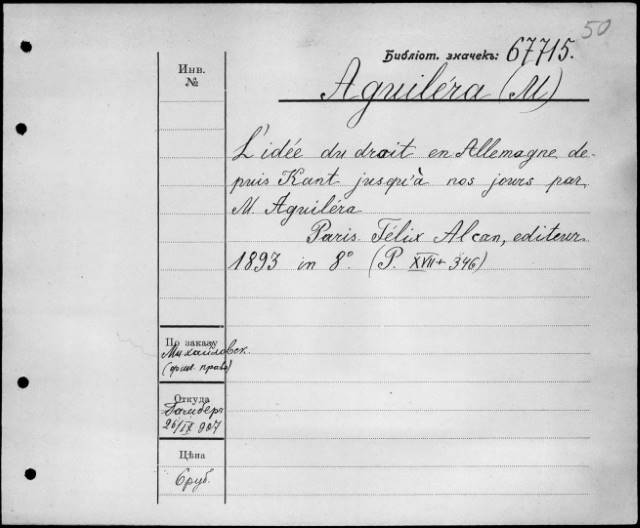 50
Библіот. значекъ: 67715.
Инв.
№
Aguiléra (M)
L'idée du droit en Allemagne de-
puis Kant jusqu'à nos jours par
M. Aguiléra
Paris. Félix Alcan, editeur
1893 in 8° (P. XVII + 346)
По заказу
Михайловск.
(фил права)
Откуда
Бамберг
26/IX 907
Цѣна
6 руб.